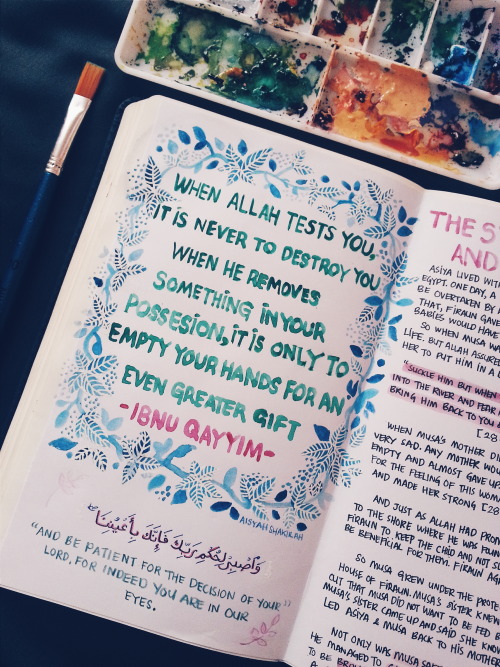 WHEN ALLAH TESTS YOU,
IT IS NEVER TO DESTROY YOU
WHEN HE REMOVES
SOMETHING IN YOUR
POSSESION, IT IS ONLY TO
EMPTY YOUR HANDS FOR AN
EVEN GREATER GIFT
-IBNU QAYYIM-
AISYAH SHAKIRAH
وَاصْبِرْ لِحُكْمِ رَبِّكَ فَإِنَّكَ بِأَعْيُنِنَا
"AND BE PATIENT FOR THE DECISION OF YOUR
LORD, FOR INDEED YOU ARE IN OUR
EYES."
THE
AND
ASIYA LIVED
EGYPT. ONE DAY, A
BE OVERTAKEN BY
THAT, FIRAUN GAVE
BABIES WOULD HAVE
SO WHEN MUSA WA
LIFE. BUT ALLAH ASSURE
HER TO PUT HIM IN A
"SUCKLE HIM BUT WHEN
INTO THE RIVER AND FEAR
BRING HIM BACK TO YOU
[28
WHEN MUSA'S MOTHER DI
VERY SAD. ANY MOTHER WOU
EMPTY AND ALMOST GAVE UP
FOR THE FEELING OF THIS WOM
AND MADE HER STRONG [28
AND JUST AS ALLAH HAD PROM
TO THE SHORE WHERE HE WAS FOUN
FIRAUN TO KEEP THE CHILD AND NOT
BE BENEFICIAL FOR THEM. FIRAUN
SO MUSA GREW UNDER THE PROTE
HOUSE OF FIRAUN. MUSA'S SISTER KNEW
OUT THAT MUSA DID NOT WANT TO BE FED B
MUSA'S SISTER CAME UP AND SAID SHE KNO
LED ASIYA & MUSA BACK TO HIS MOTHE
NOT ONLY WAS MUSA
HE MANAGED TO
TO BE